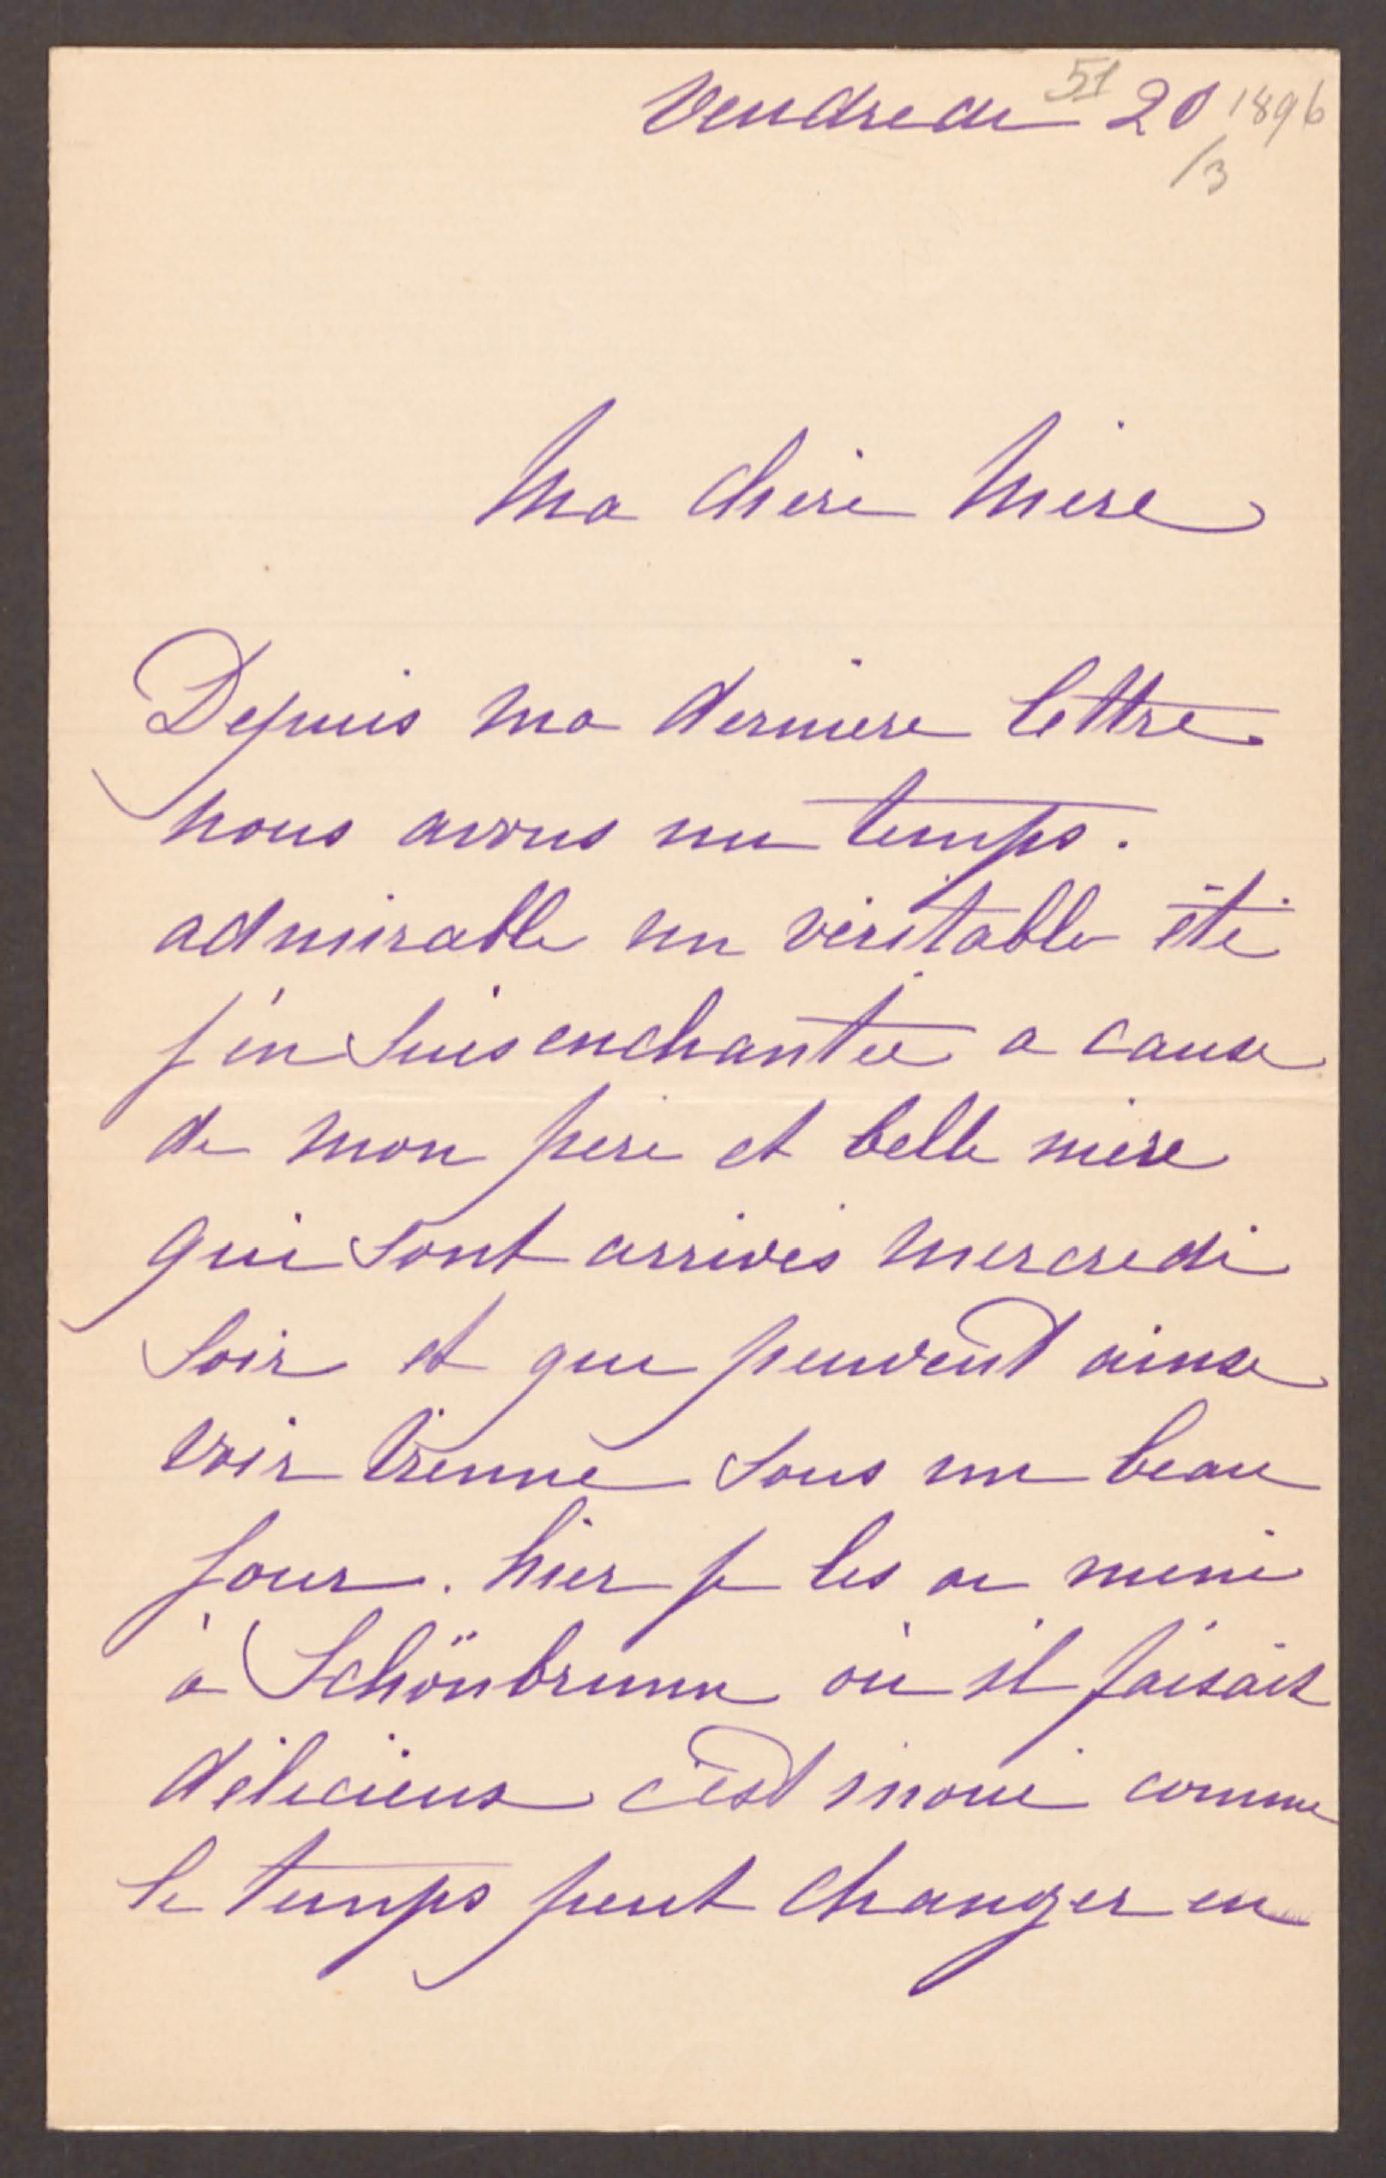 51
Vendredi 20 1896
/3
Ma chère Mère
Depuis ma dernière lettre
nous avons un temps.
admirable un véritable été
j'en suis enchantée a cause
de mon père et belle mère
qui sont arrivés mercredi
soir et qui peuvent ainsi
voir Vienne sous un beau
jour. hier je les ai mené
à Schönbrunn où il faisait
délicieux c'est inouï comme
le temps peut changer en